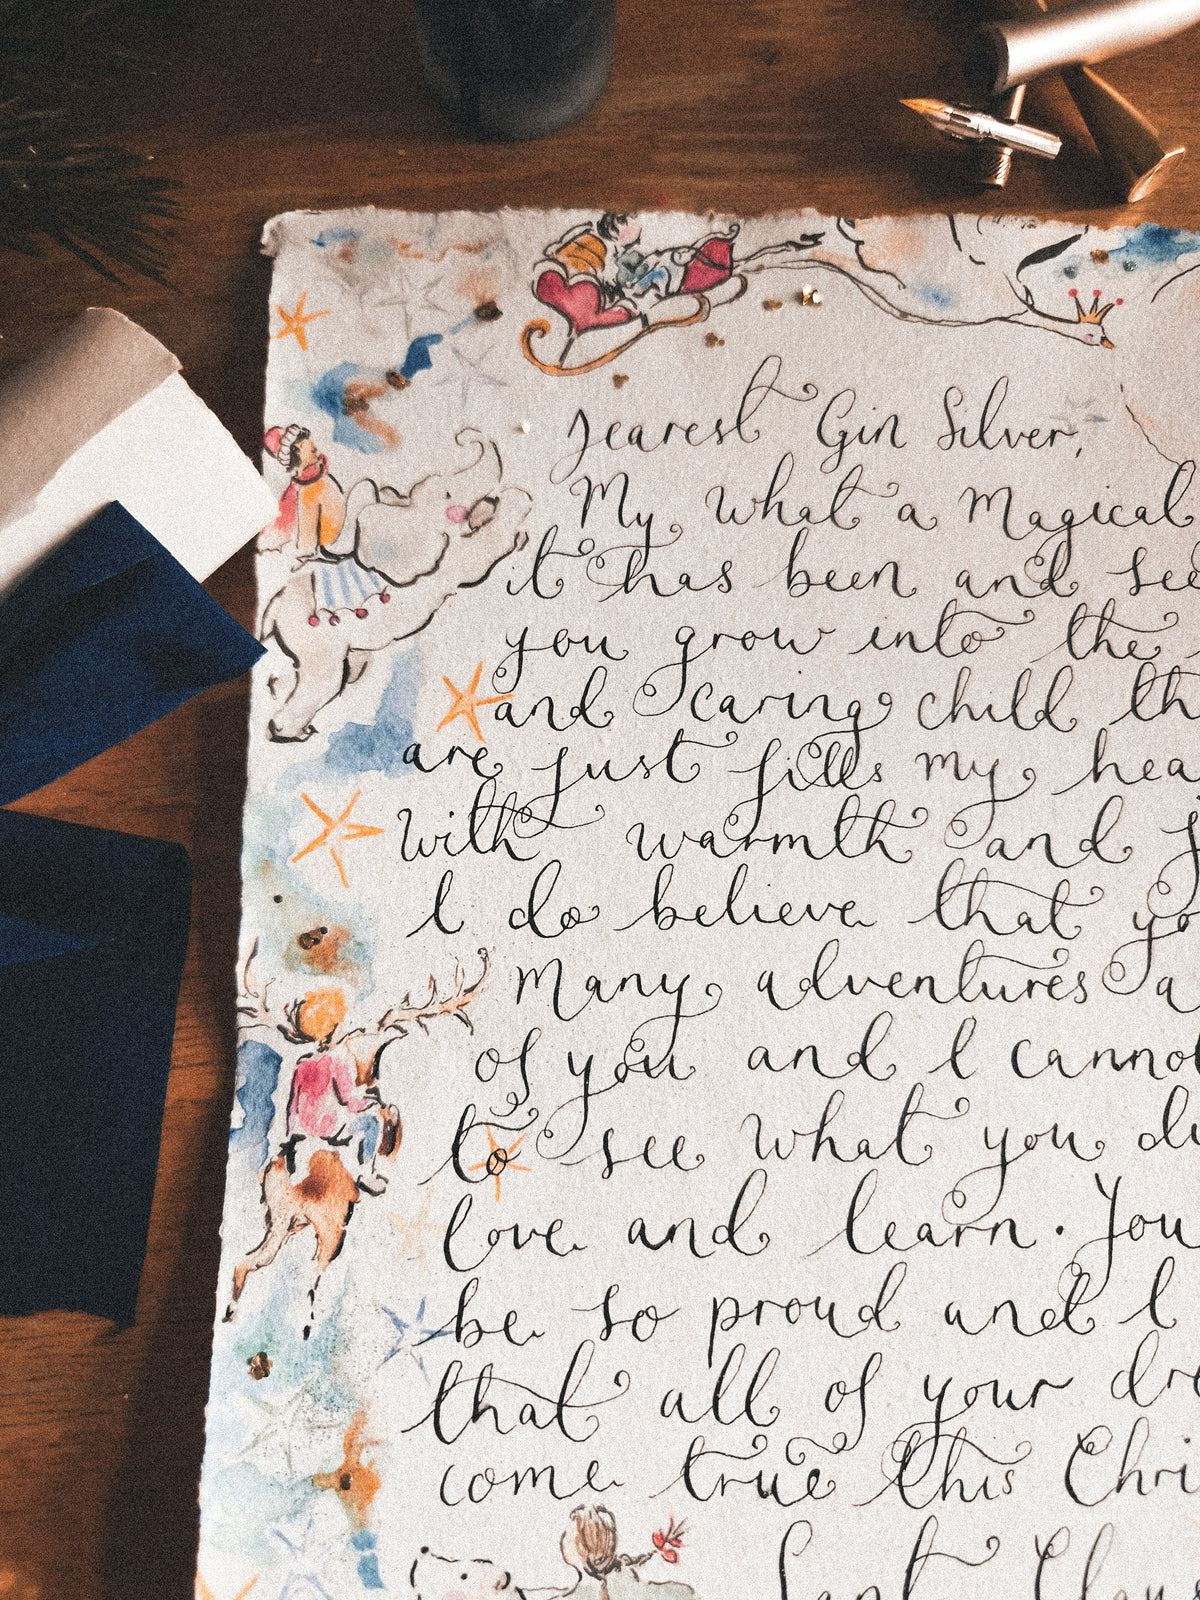 Dearest Gin Silver,
My what a Magical
it has been and see
you grow into the
and caring child th
are just fills my hea
With warmth and
I do believe that yo
Many adventures a
of you and I cannot
to see what you d
love and learn. You
be so proud and I
that all of your dre
come true this Chri
Santa Claus